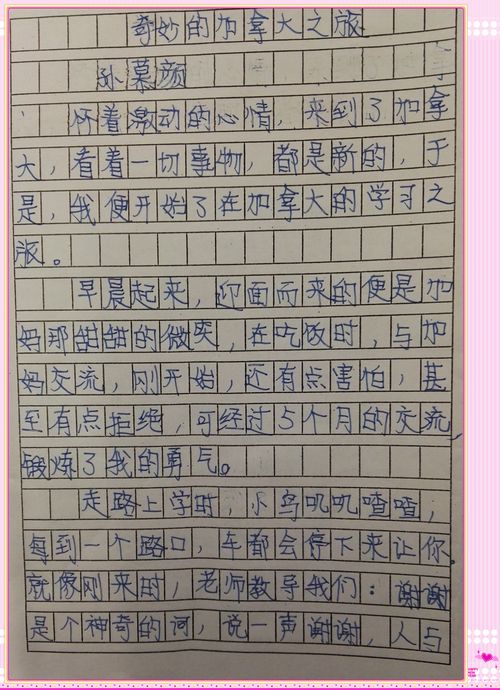 奇妙的加拿大之旅
孙慕颜
怀着激动的心情，来到了加拿
大，看着一切事物，都是新的，于
是，我便开始了在加拿大的学习之
旅。
早晨起来，迎面而来的便是加
妈那甜甜的微笑，在吃饭时，与加
妈交流，刚开始，还有点害怕，甚
至有点拒绝，可经过5个月的交流，
锻炼了我的勇气。
走路上学时，小鸟叽叽喳喳，
每到一个路口，车都会停下来让你。
就像刚来时，老师教导我们：谢谢
是个神奇的词，说一声谢谢，人与